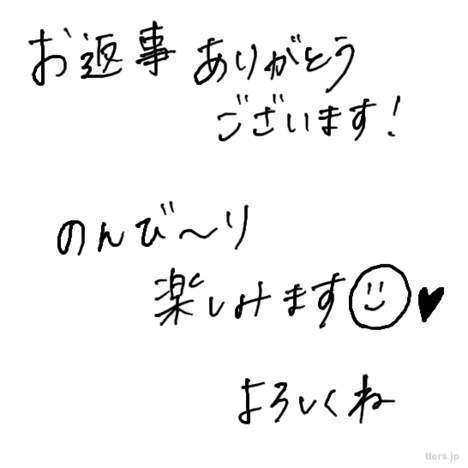 お返事ありがとう
ございます!
のんび〜り
楽しみます☺♥
よろしくね
tters.jp